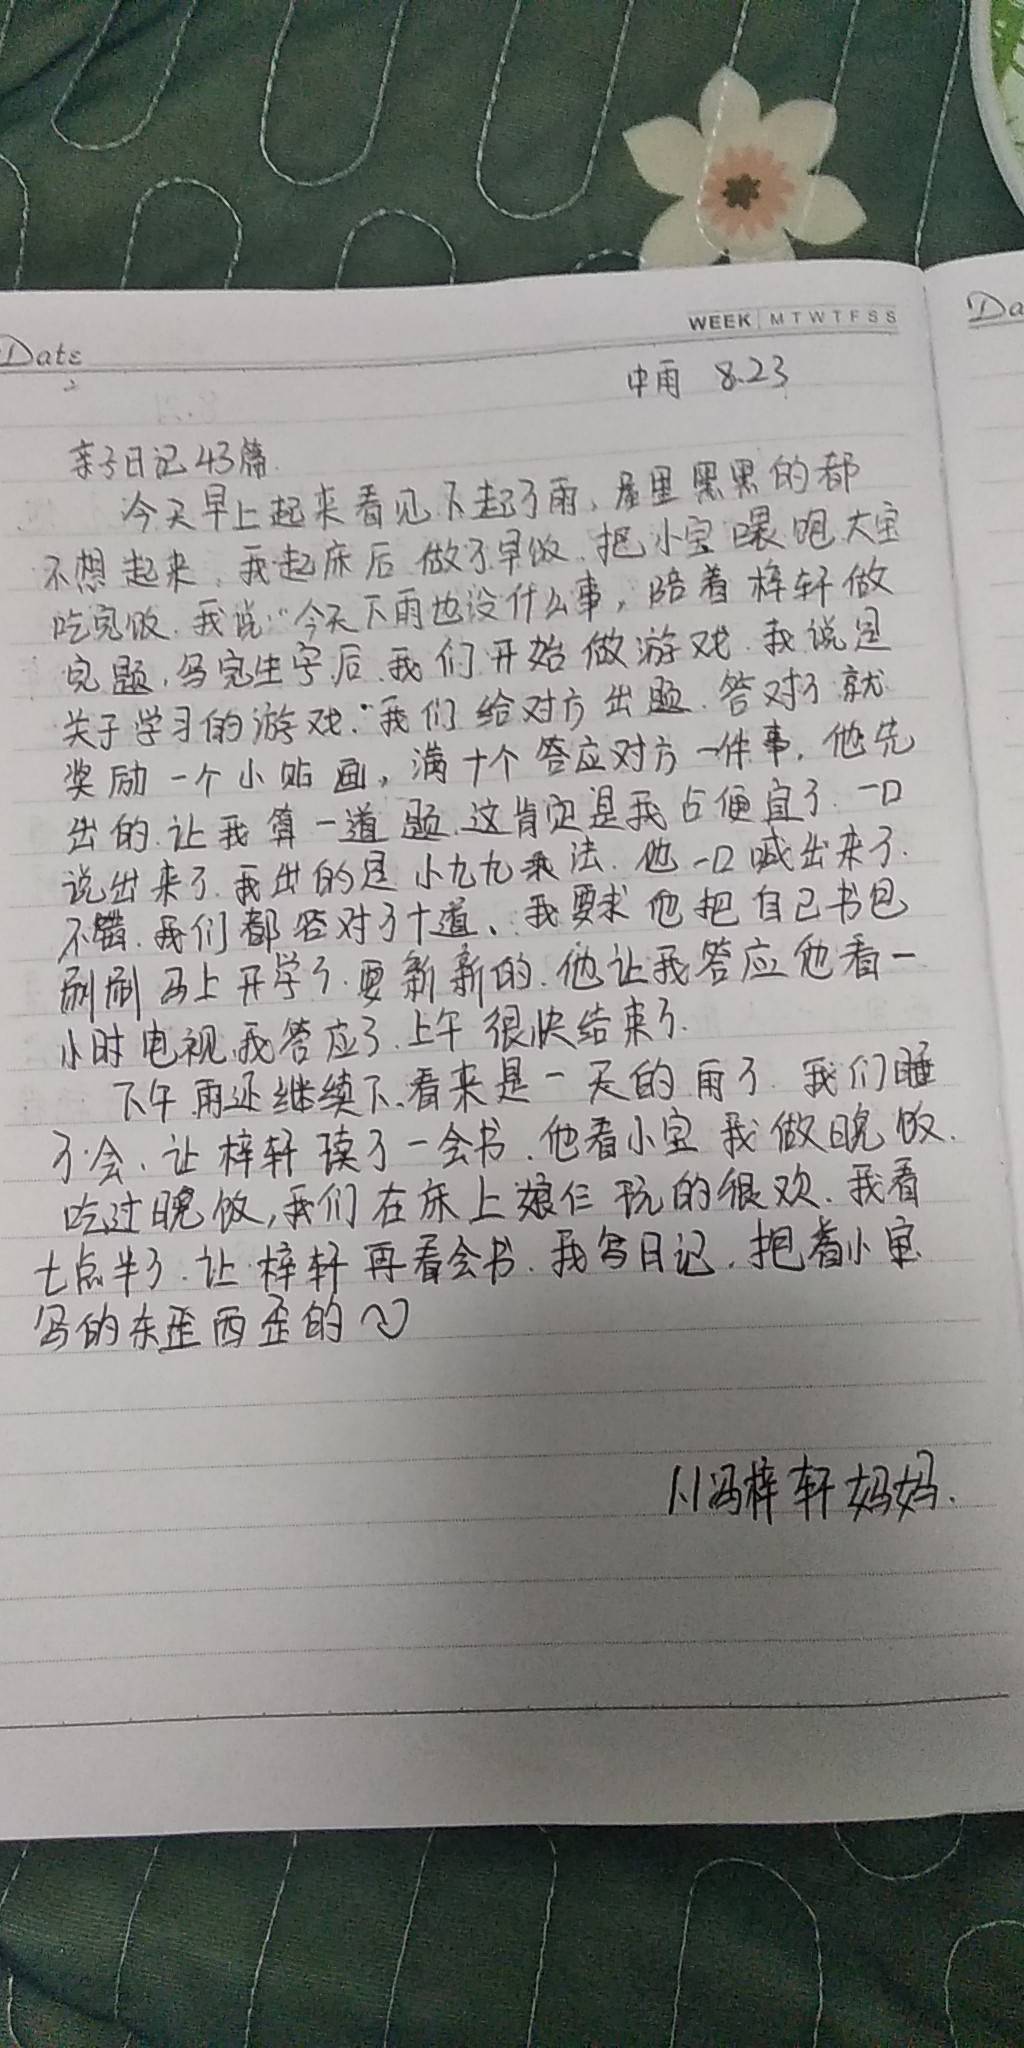 WEEK M T W T F S S
Date
Da
中雨 8.23
亲子日记43篇
今天早上起来看见下起了雨,屋里黑黑的都
不想起来,我起床后做了早饭.把小宝喂饱大宝
吃完饭.我说"今天下雨也没什么事,陪着梓轩做
完题,写完生字后.我们开始做游戏.我说是
关于学习的游戏."我们给对方出题.答对了就
奖励一个小贴画,满十个答应对方一件事.他先
出的.让我算一道题.这肯定是我占便宜了.一口
说出来了.我出的是小九九乘法.他一口喊出来了.
不错.我们都答对了十道、我要求他把自己书包
刷刷马上开学了.要新新的.他让我答应他看一
小时电视.我答应了.上午很快结束了.
下午.雨还继续下.看来是一天的雨了.我们睡
了会、让梓轩读了一会书.他看小宝我做晚饭.
吃过晚饭,我们在床上娘仨玩的很欢.我看
七点半了.让梓轩再看会书.我写日记,抱着小宝
写的东歪西歪的
1.1冯梓轩妈妈.